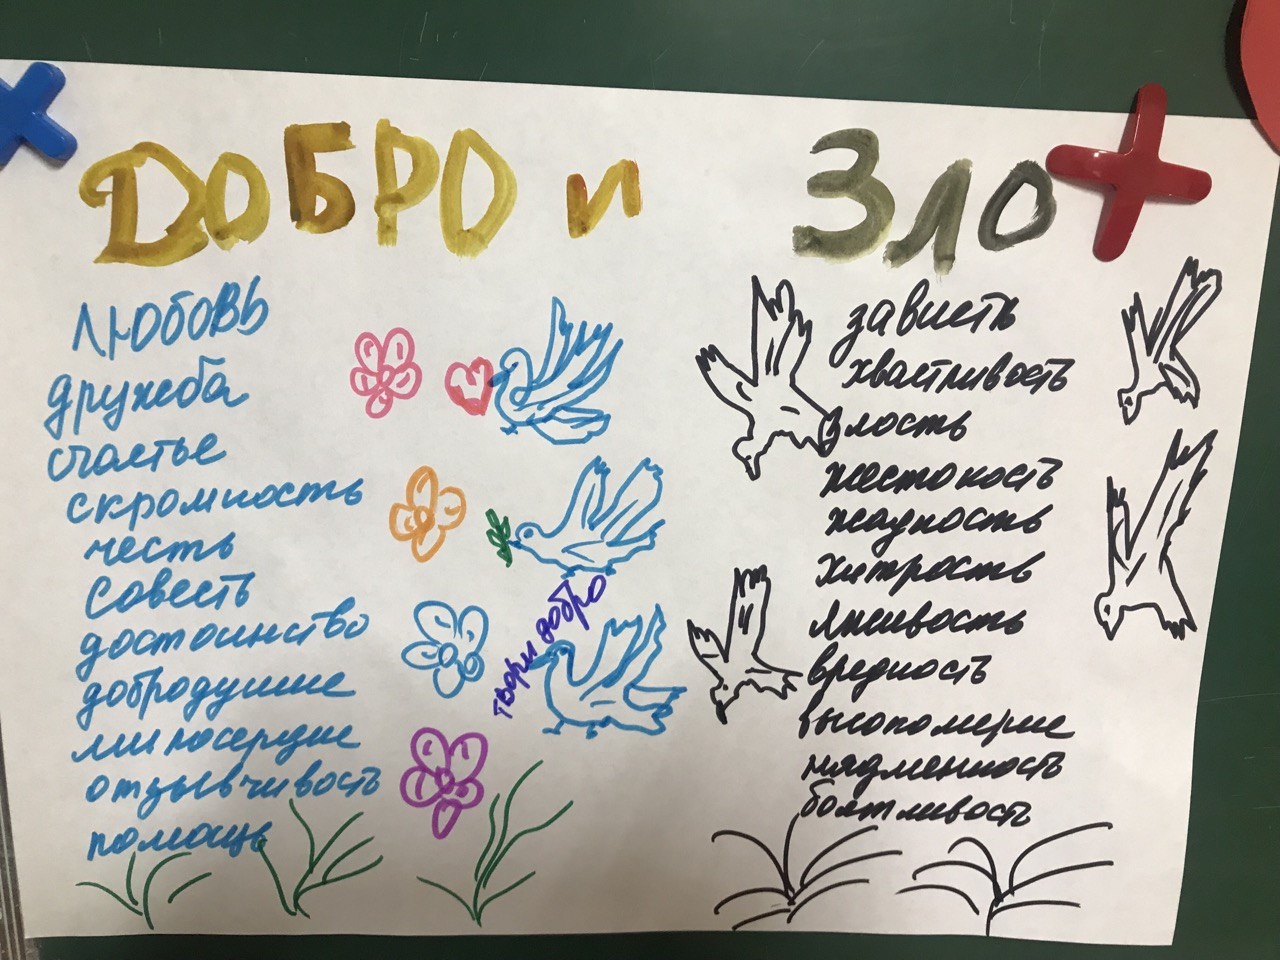 ДОБРО и ЗЛО
любовь
дружба
счастье
скромность
честь
совесть
достоинство
добродушие
милосердие
отзывчивость
помощь
твори добро
зависть
хвастливость
злость
жестокость
жадность
хитрость
лживость
вредность
высокомерие
надменность
болтливость